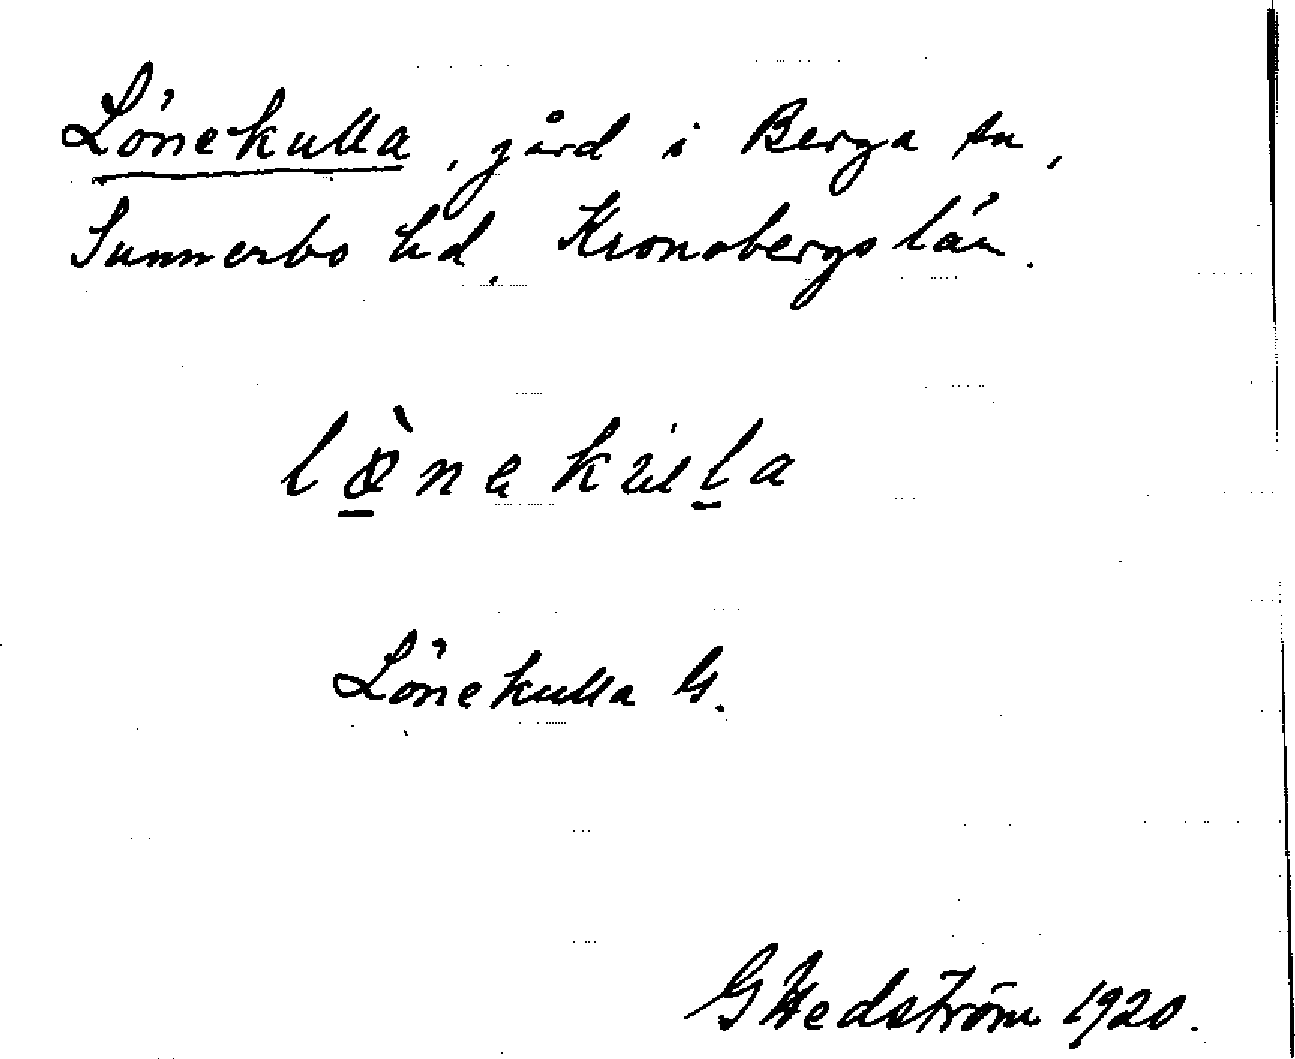 Lönekulla, gård i Berga sn,
Sunnerbo hd, Kronobergs län.
lø̱̀nekul̠a
Lönekulla G.
G Hedström 1920.